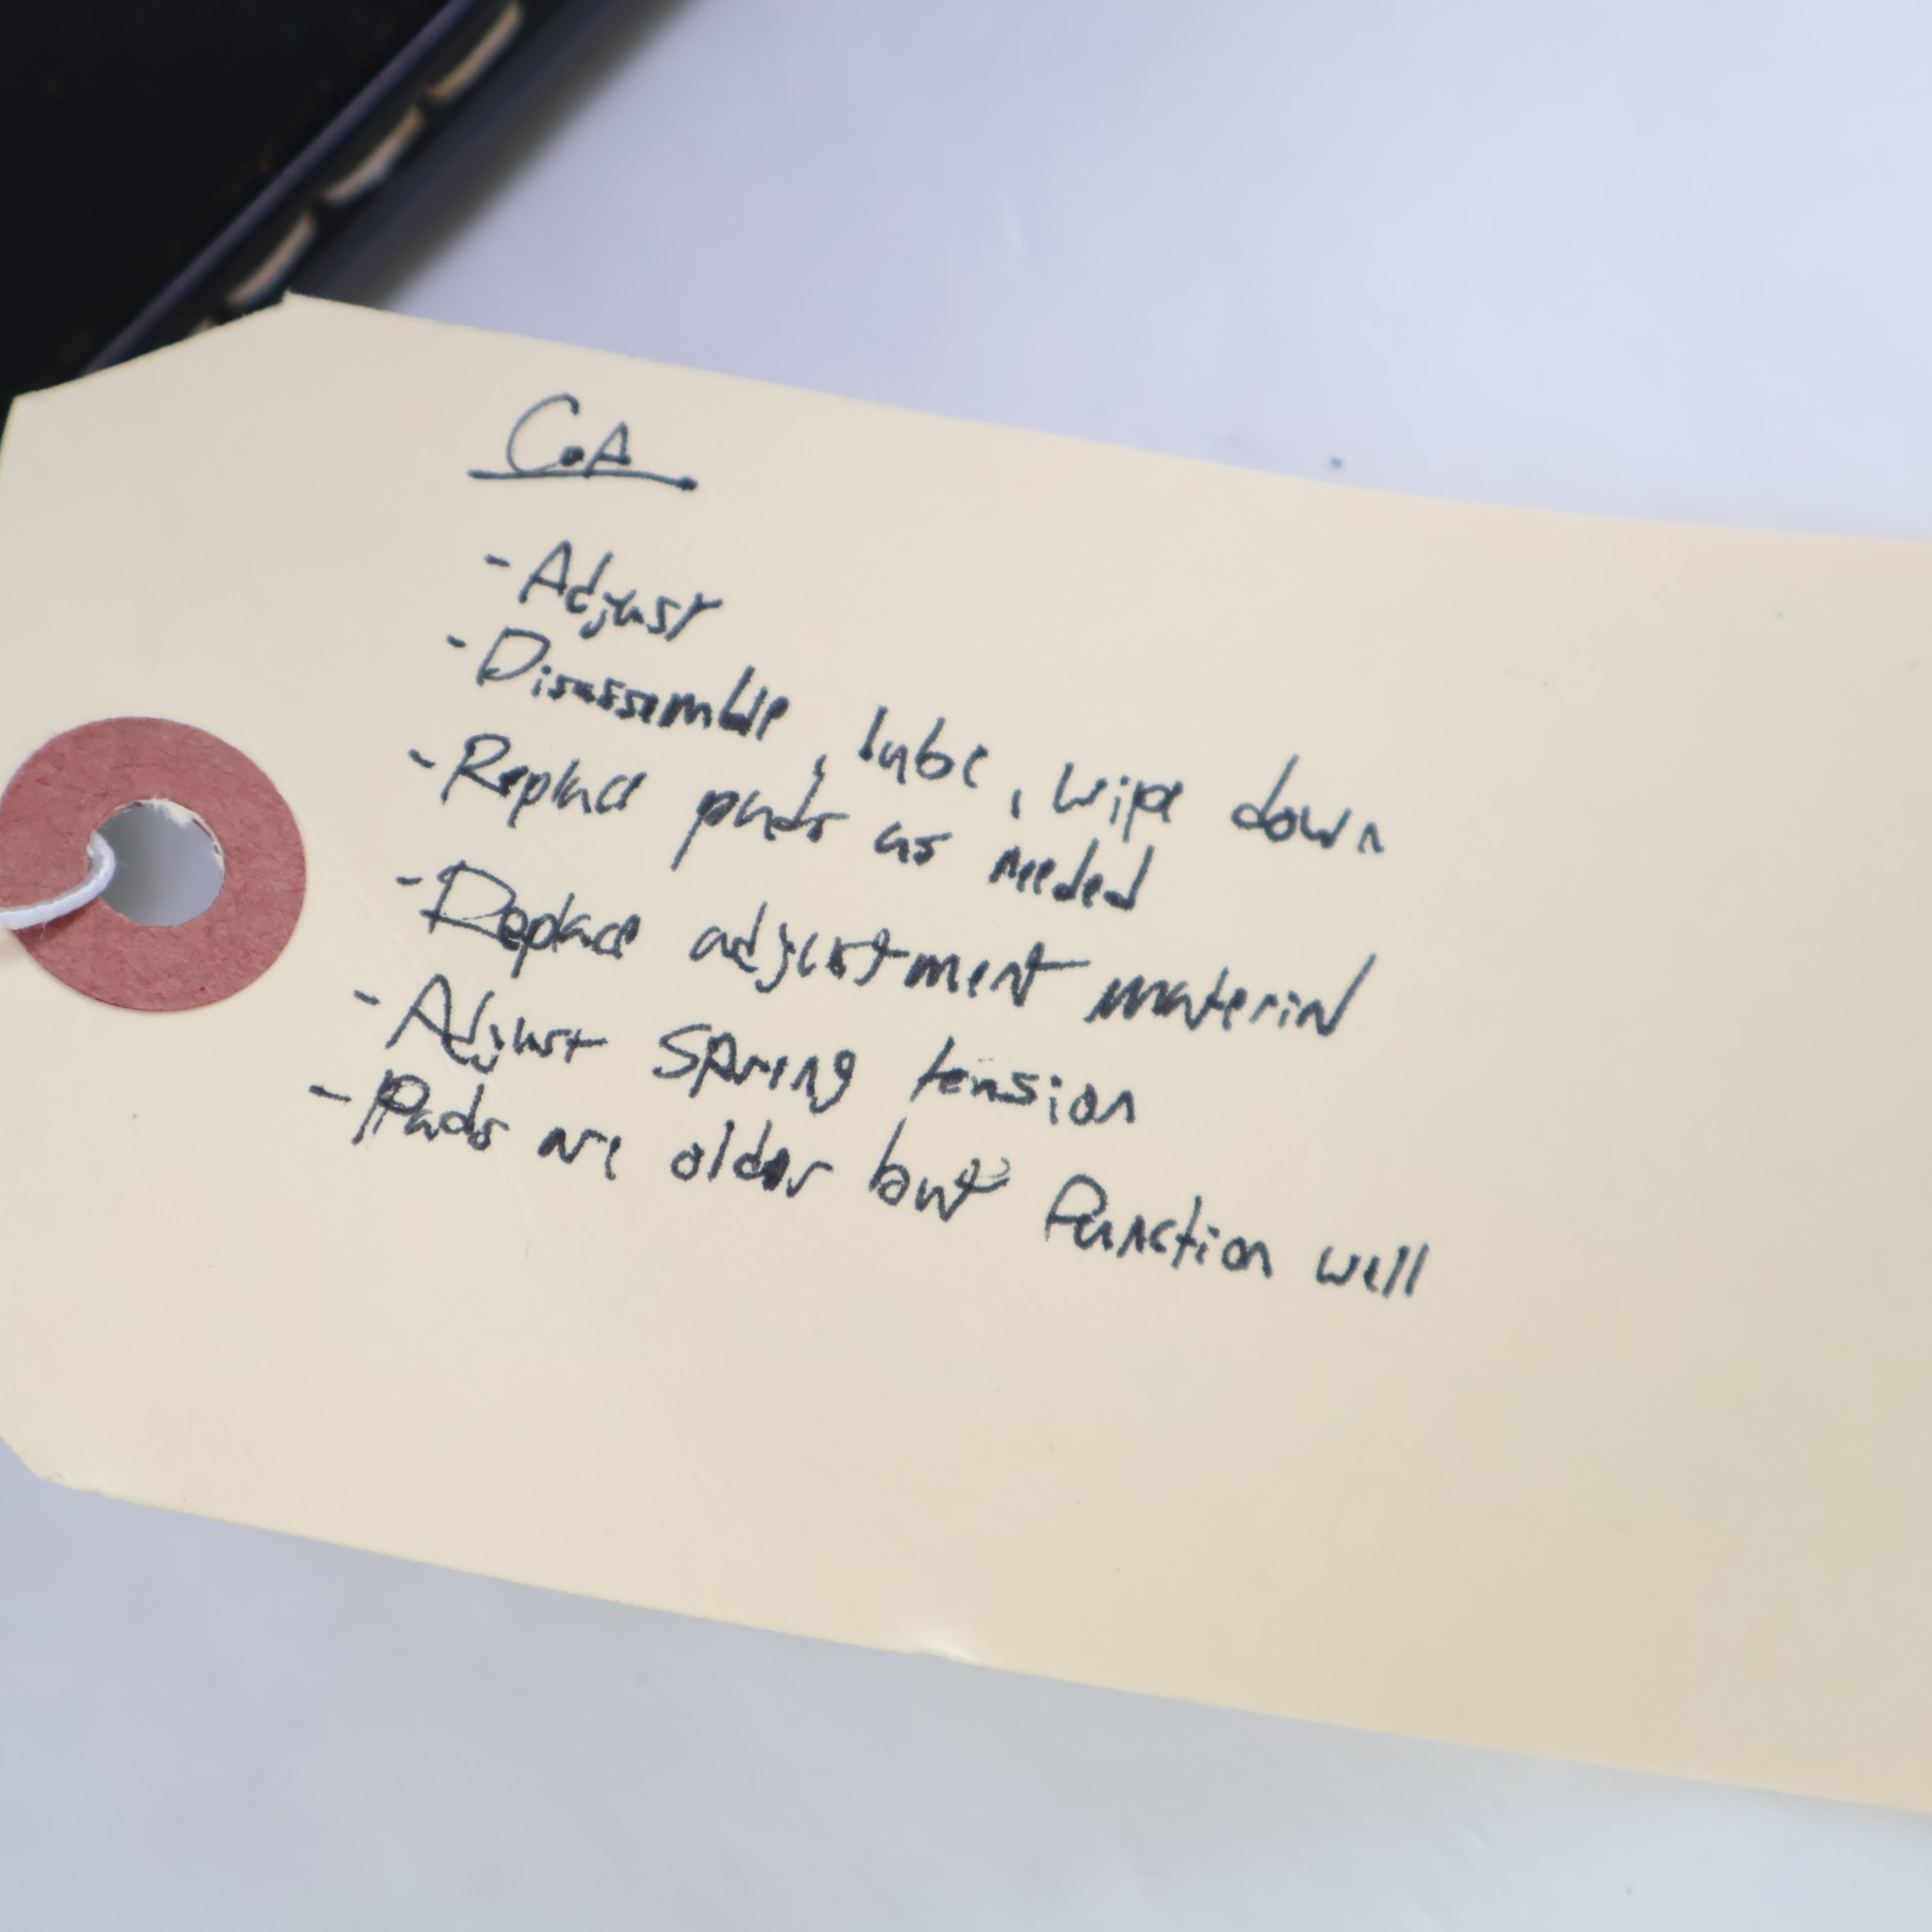 CoA
- Adjust
- Disassemble, lube, wipe down
- Replace pads as needed
- Replace adjustment material
- Adjust spring tension
- Pads are older but function well